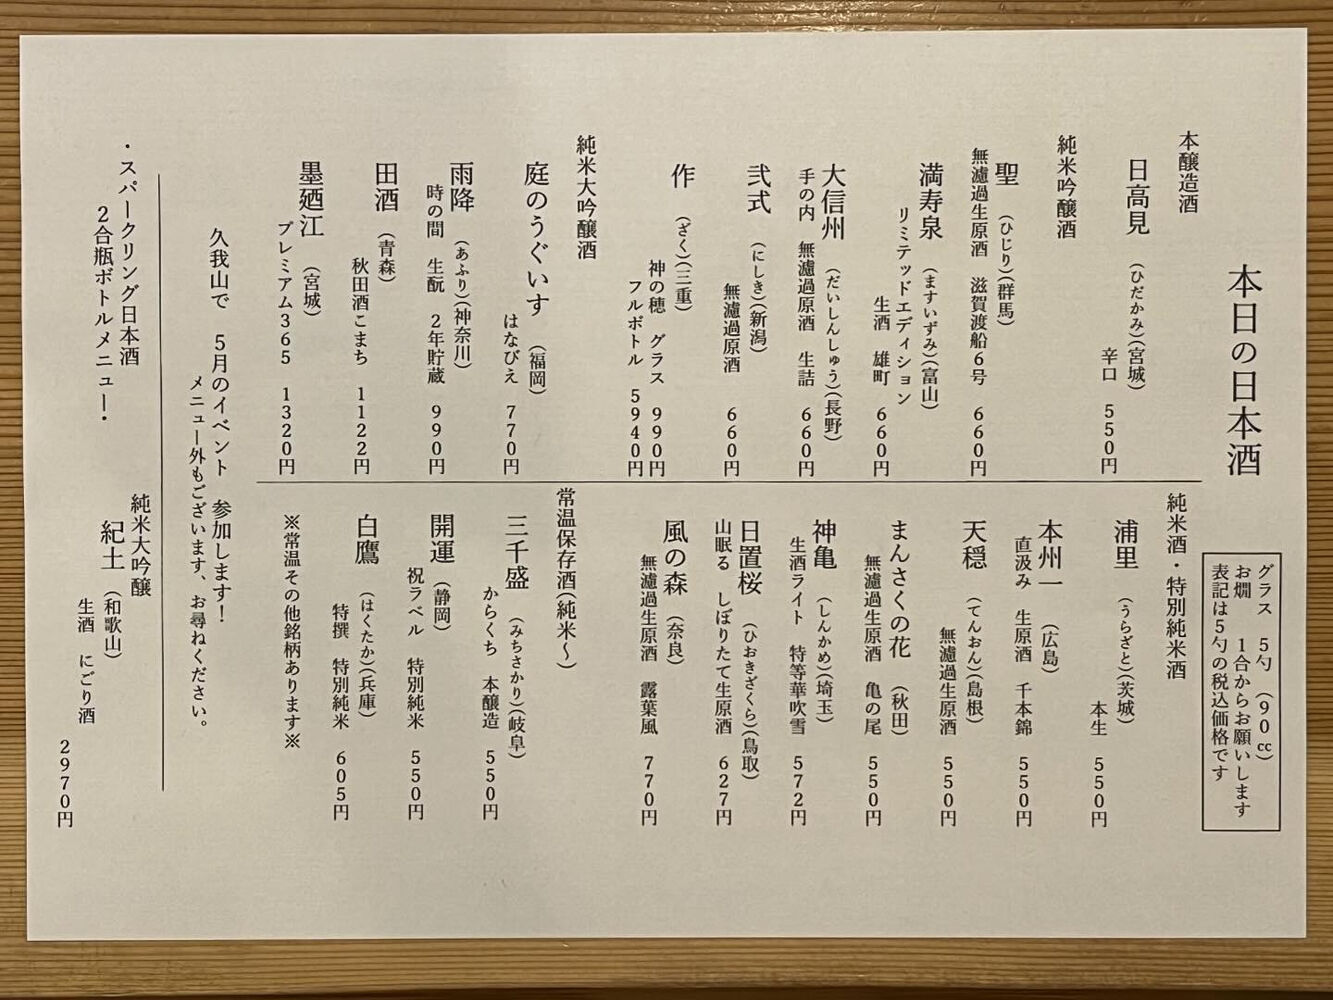 本日の日本酒
グラス　5勺　(90cc)
お燗　1合からお願いします
表記は5勺の税込価格です
本醸造酒
日高見　(ひだかみ)(宮城)
辛口　550円
純米吟醸酒
聖　(ひじり)(群馬)
無濾過生原酒　滋賀渡船6号　660円
満寿泉　(ますいずみ)(富山)
リミテッドエディション
生酒　雄町　660円
大信州　(だいしんしゅう)(長野)
手の内　無濾過原酒　生詰　660円
弐式　(にしき)(新潟)
無濾過原酒　660円
作　(ざく)(三重)
神の穂　グラス　990円
フルボトル　5940円
純米大吟醸酒
庭のうぐいす　(福岡)
はなびえ　770円
雨降　(あふり)(神奈川)
時の間　生酛　2年貯蔵　990円
田酒　(青森)
秋田酒こまち　1122円
墨廼江　(宮城)
プレミアム365　1320円
純米酒・特別純米酒
浦里　(うらざと)(茨城)
本生　550円
本州一　(広島)
直汲み　生原酒　千本錦　550円
天穏　(てんおん)(島根)
無濾過生原酒　550円
まんさくの花　(秋田)
無濾過生原酒　亀の尾　550円
神亀　(しんかめ)(埼玉)
生酒ライト　特等華吹雪　572円
日置桜　(ひおきざくら)(鳥取)
山眠る　しぼりたて生原酒　627円
風の森　(奈良)
無濾過生原酒　露葉風　770円
常温保存酒(純米～)
三千盛　(みちさかり)(岐阜)
からくち　本醸造　550円
開運　(静岡)
祝ラベル　特別純米　550円
白鷹　(はくたか)(兵庫)
特撰　特別純米　605円
※常温その他銘柄あります※
久我山で　5月のイベント　参加します！
メニュー外もございます、お尋ねください。
・スパークリング日本酒
2合瓶ボトルメニュー・
純米大吟醸
紀土　(和歌山)
生酒　にごり酒　2970円